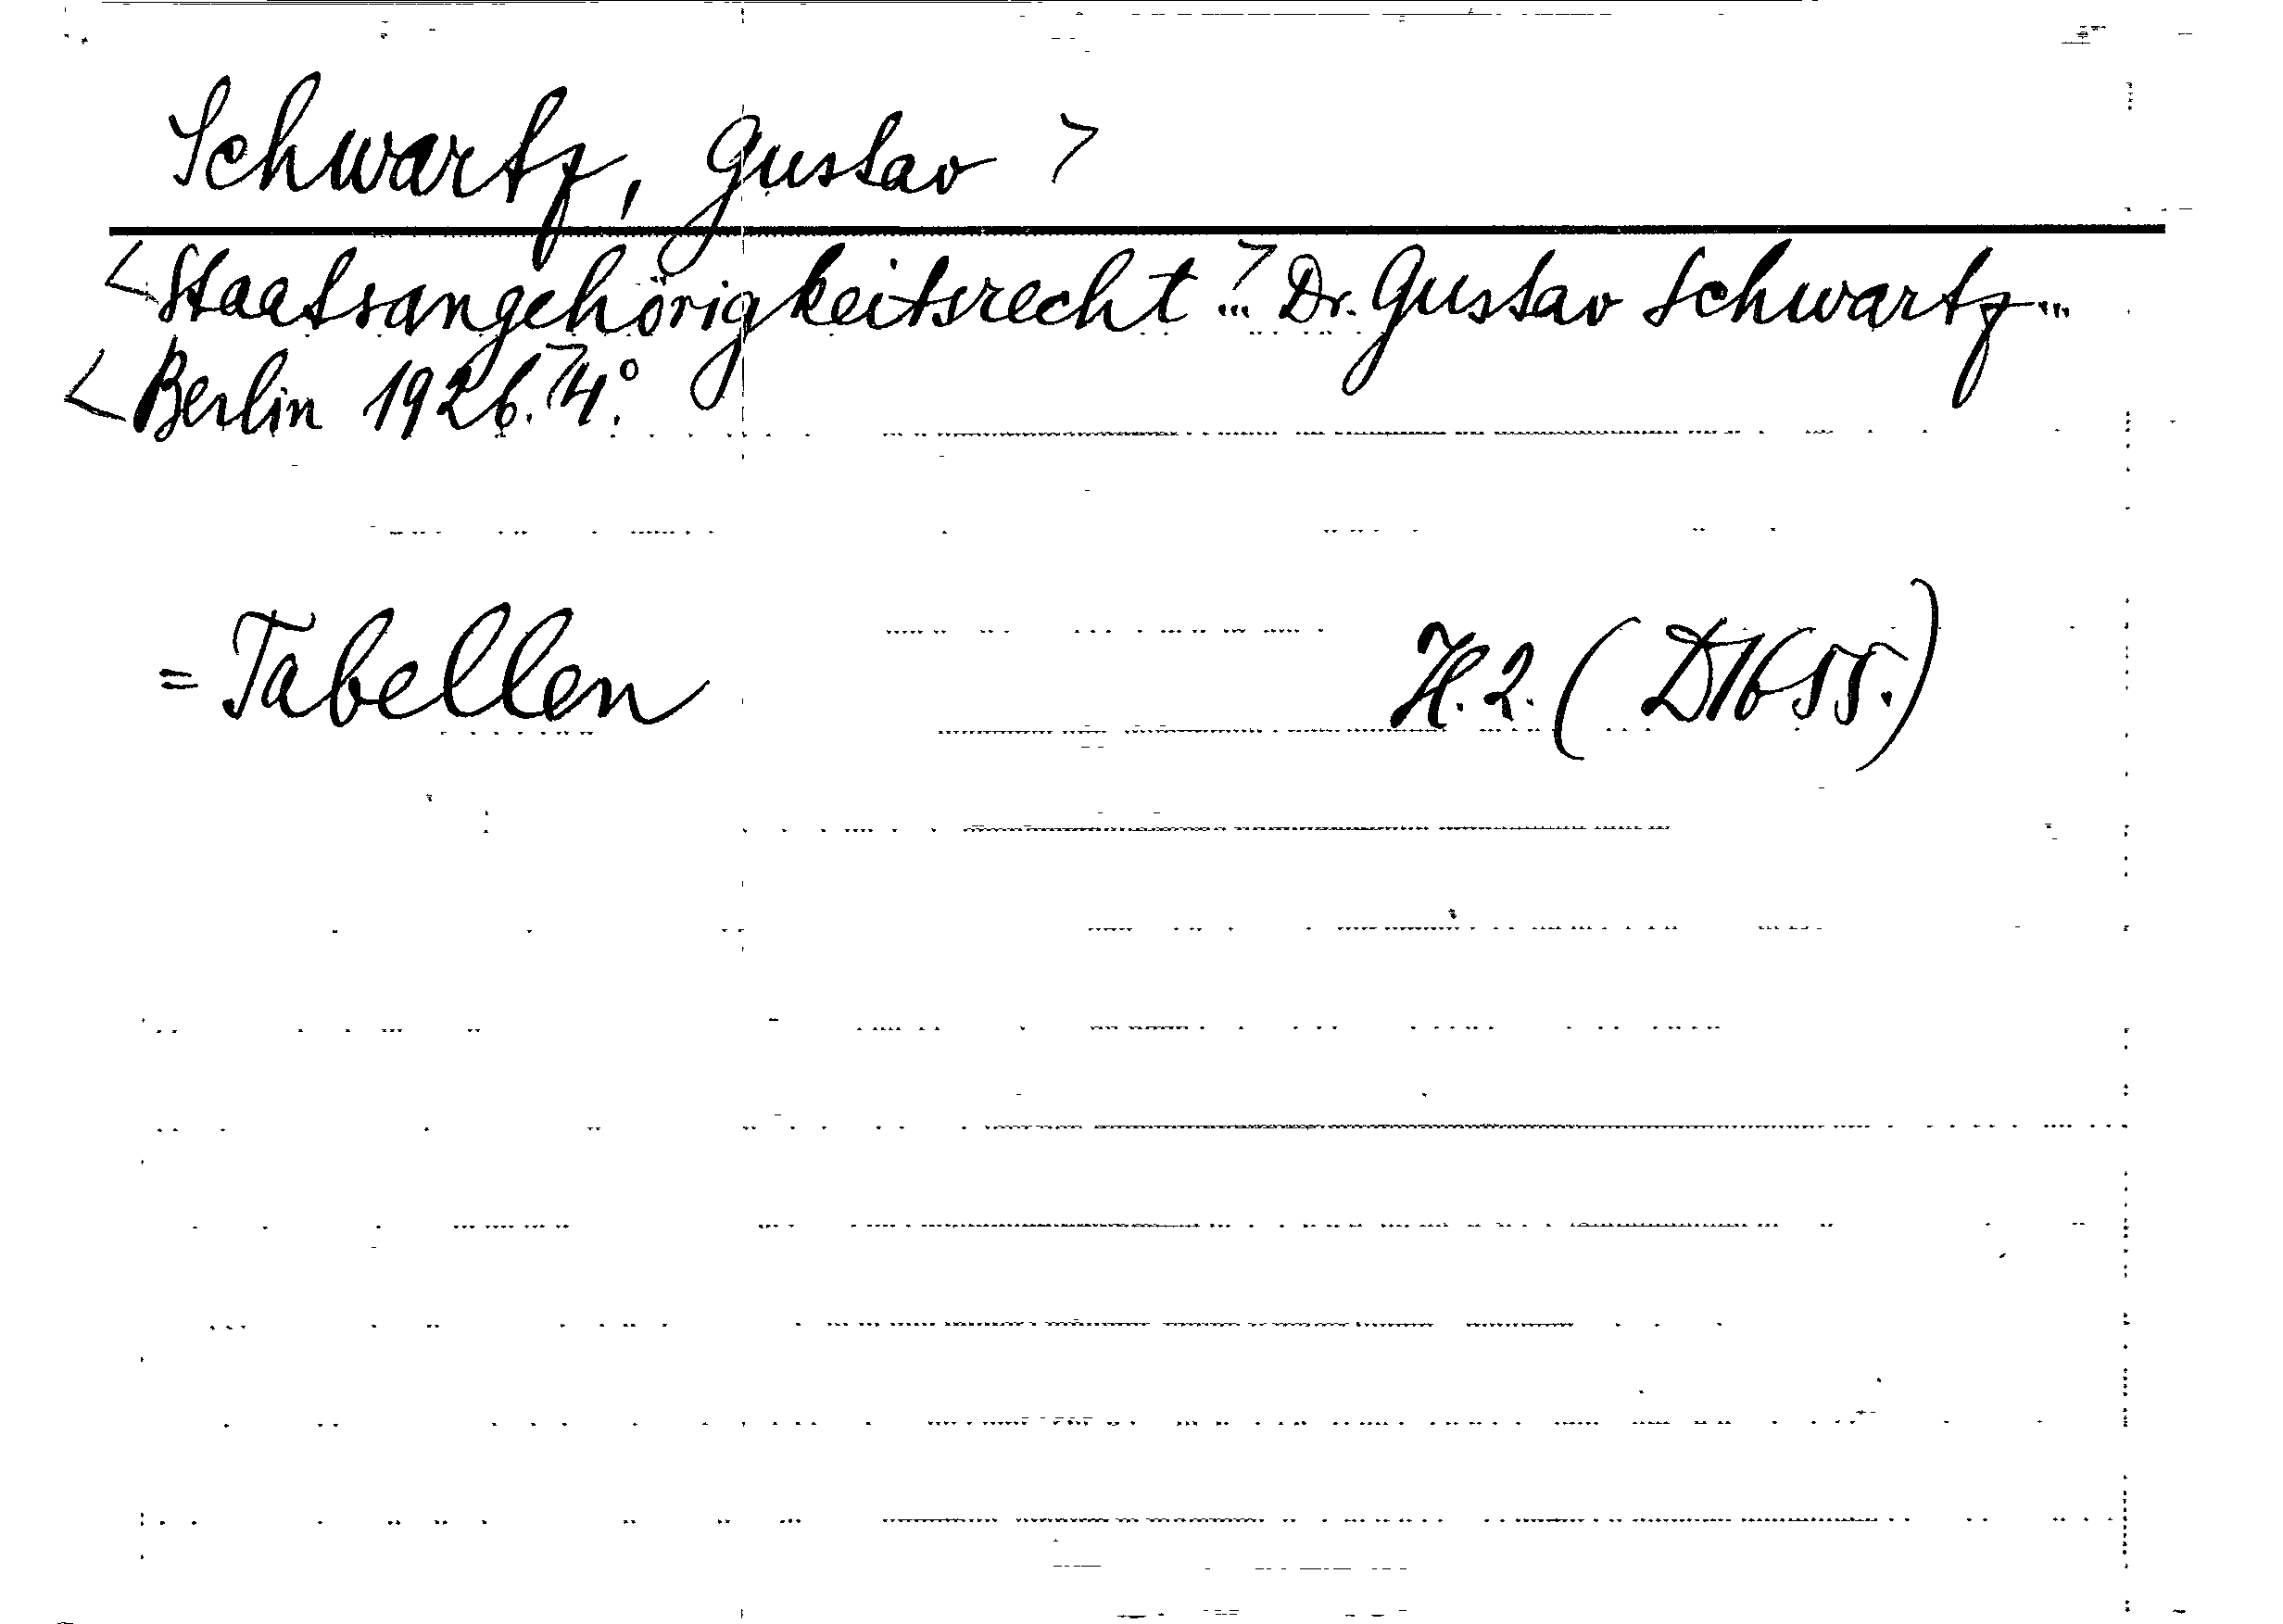 Schwartz, Gustav >
<Staatsangehörigkeitsrecht...> Dr. Gustav Schwartz...
<Berlin 1926.> 4°.
= Tabellen H. 2. (D1655.)